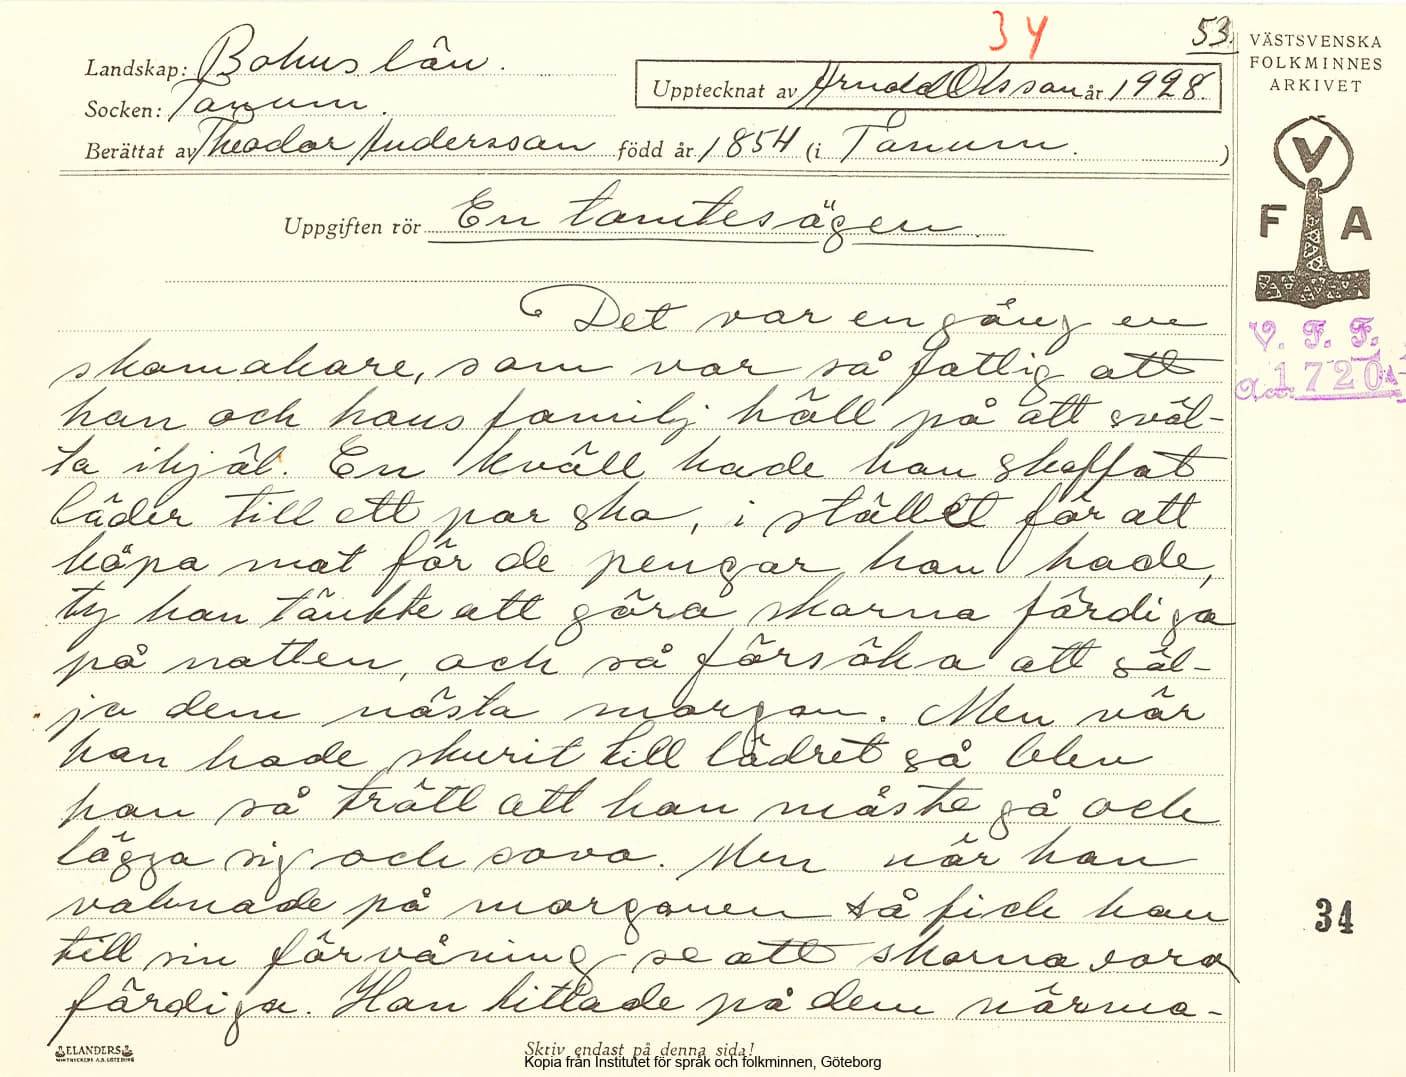 34
53.
Landskap: Bohuslän.
Socken: Tanum.
Upptecknat av Arnold Olsson år 1928.
Berättat av Theodor Andersson född år 1854 (i Tanum. )
VÄSTSVENSKA
FOLKMINNES
ARKIVET
V
F A
V. F. F.
Acc. 1720
Uppgiften rör En tomtesägen.
Det var en gång en
skomakare, som var så fattig att
han och hans familj höll på att sväl-
ta ihjäl. En kväll hade han skaffat
läder till ett par sko, i stället för att
köpa mat för de pengar han hade,
ty han tänkte att göra skorna färdiga
på natten, och så försöka att säl-
ja dem nästa morgon. Men när
han hade skurit till lädret så blev
han så trött att han måste gå och
lägga sig och sova. Men när han
vaknade på morgonen så fick han
till sin förvåning se att skorna voro
färdiga. Han tittade på dem närma-
34
ELANDERS
Skriv endast på denna sida!
Kopia från Institutet för språk och folkminnen, Göteborg